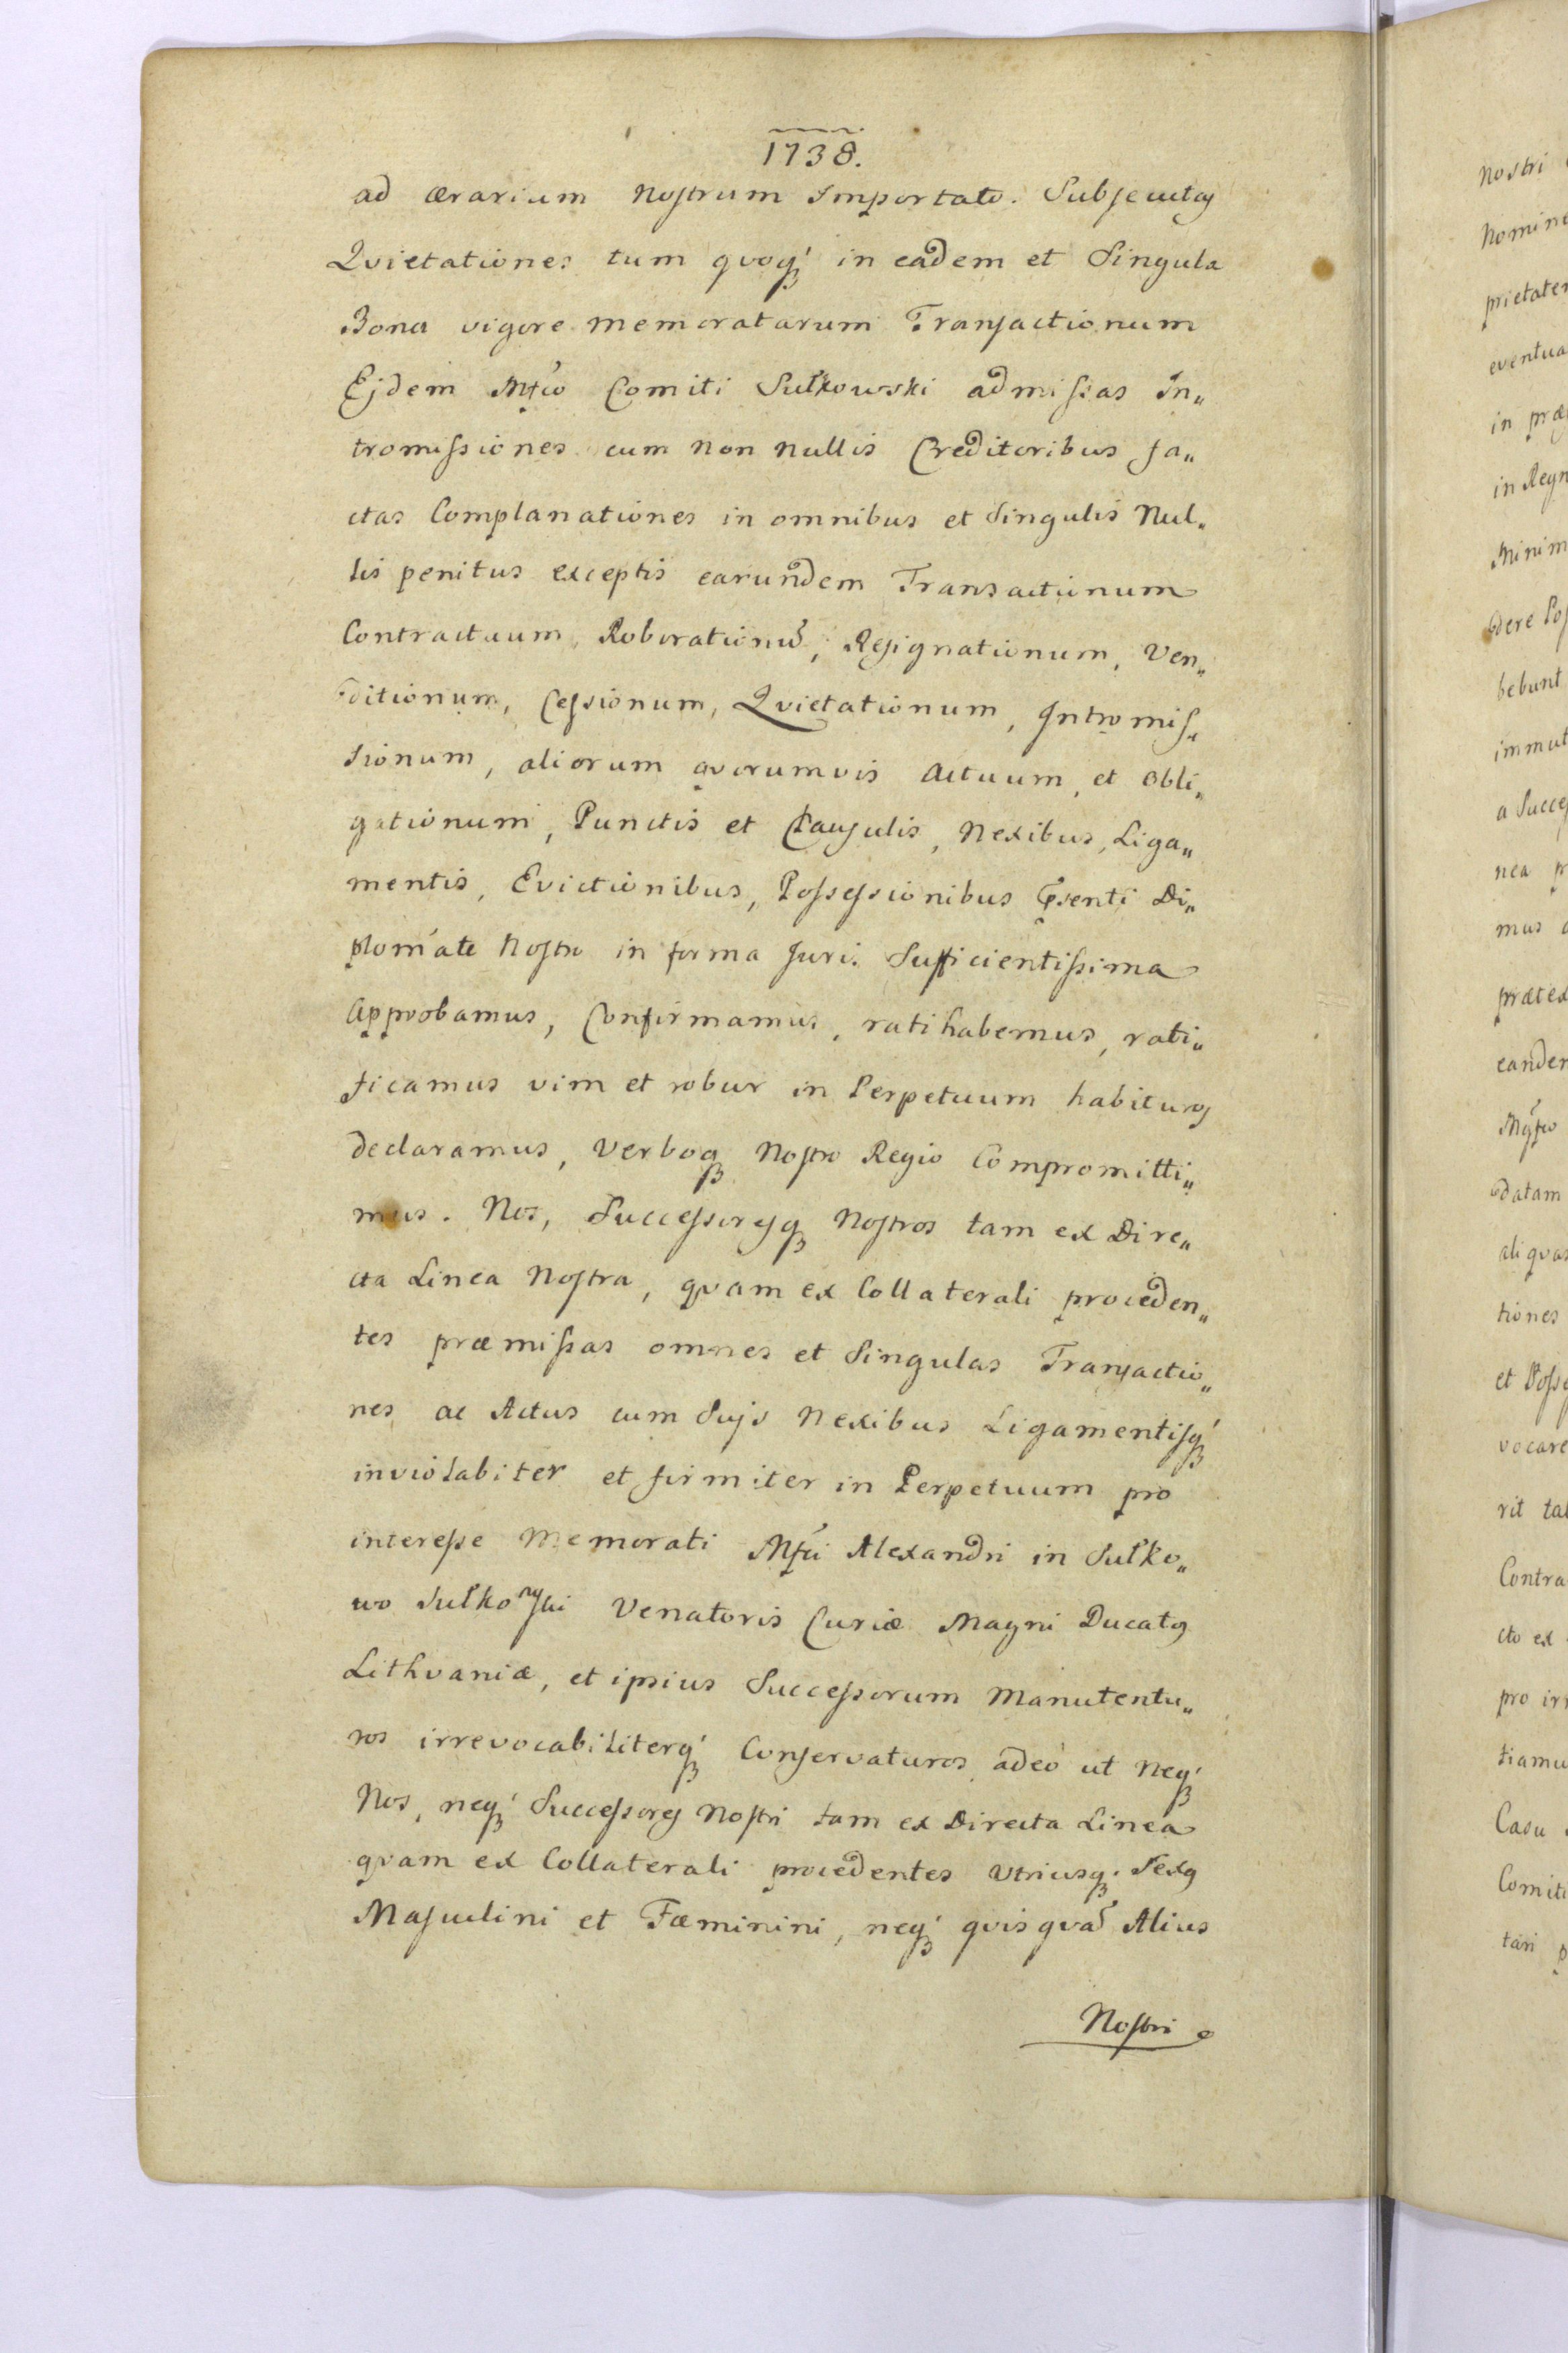 1738.
ad ærarium Nostrum Importato. Subsecutas
Qvietationes tum qvoq́ in eadem et Singula
Bona vigore memoratarum Transactionum
Ejdem Mfco Comiti Sułkowski admissas In„
tromissiones cum non nullis Creditoribus fa„
ctas Complanationes in omnibus et Singulis Nul„
lis penitus exceptis earundem Transactionum
Contractuum, Roborationũ, Resignationum, Ven„
ditionum, Cessionum, Qvietationum, Intromis„
sionum, aliorum qvorumvis Actuum, et Obli„
gationum, Punctis et Clausulis, Nexibus, Liga„
mentis, Evictionibus, Possessionibus Psenti Di„
plomate Nostro in forma Juris Sufficientissima
Approbamus, Confirmamus, ratihabemus, rati„
ficamus vim et robur in Perpetuum habituros
declaramus, Verboq Nostro Regio Compromitti„
mus. Nos, Successoresq Nostros tam ex Dire„
cta Linea Nostra, qvam ex Collaterali proceden„
tes præmissas omnes et Singulas Transactio„
nes ac Actus cum Sujs Nexibus Ligamentisq́
inviolabiter et firmiter in Perpetuum pro
interesse Memorati Mfci Alexandri in Sułko„
wo Sułkowski Venatoris Curiæ Magni Ducatus
Lithvaniæ, et ipsius Successorum Manutentu„
ros irrevocabiliterq́ Conservaturos adeò ut neq́
Nos, neq́ Successores Nostri tam ex Directa Linea
qvam ex Collaterali procedentes Utriusq. Sexus
Masculini et Fæminini, neq́ qvisqvã Alius
Nostri
nostri
Nomine
prietatem
eventua
in præ
in Regn
Minim
dere Pos
bebunt
immut
a Succes
nea p
mus
prætex
eandem
Mgfco
datam
aliqvas
tiones
et Posse
vocare
rit tal
Contra
cto ex
pro irr
tiamu
Casu
Comiti
tari p